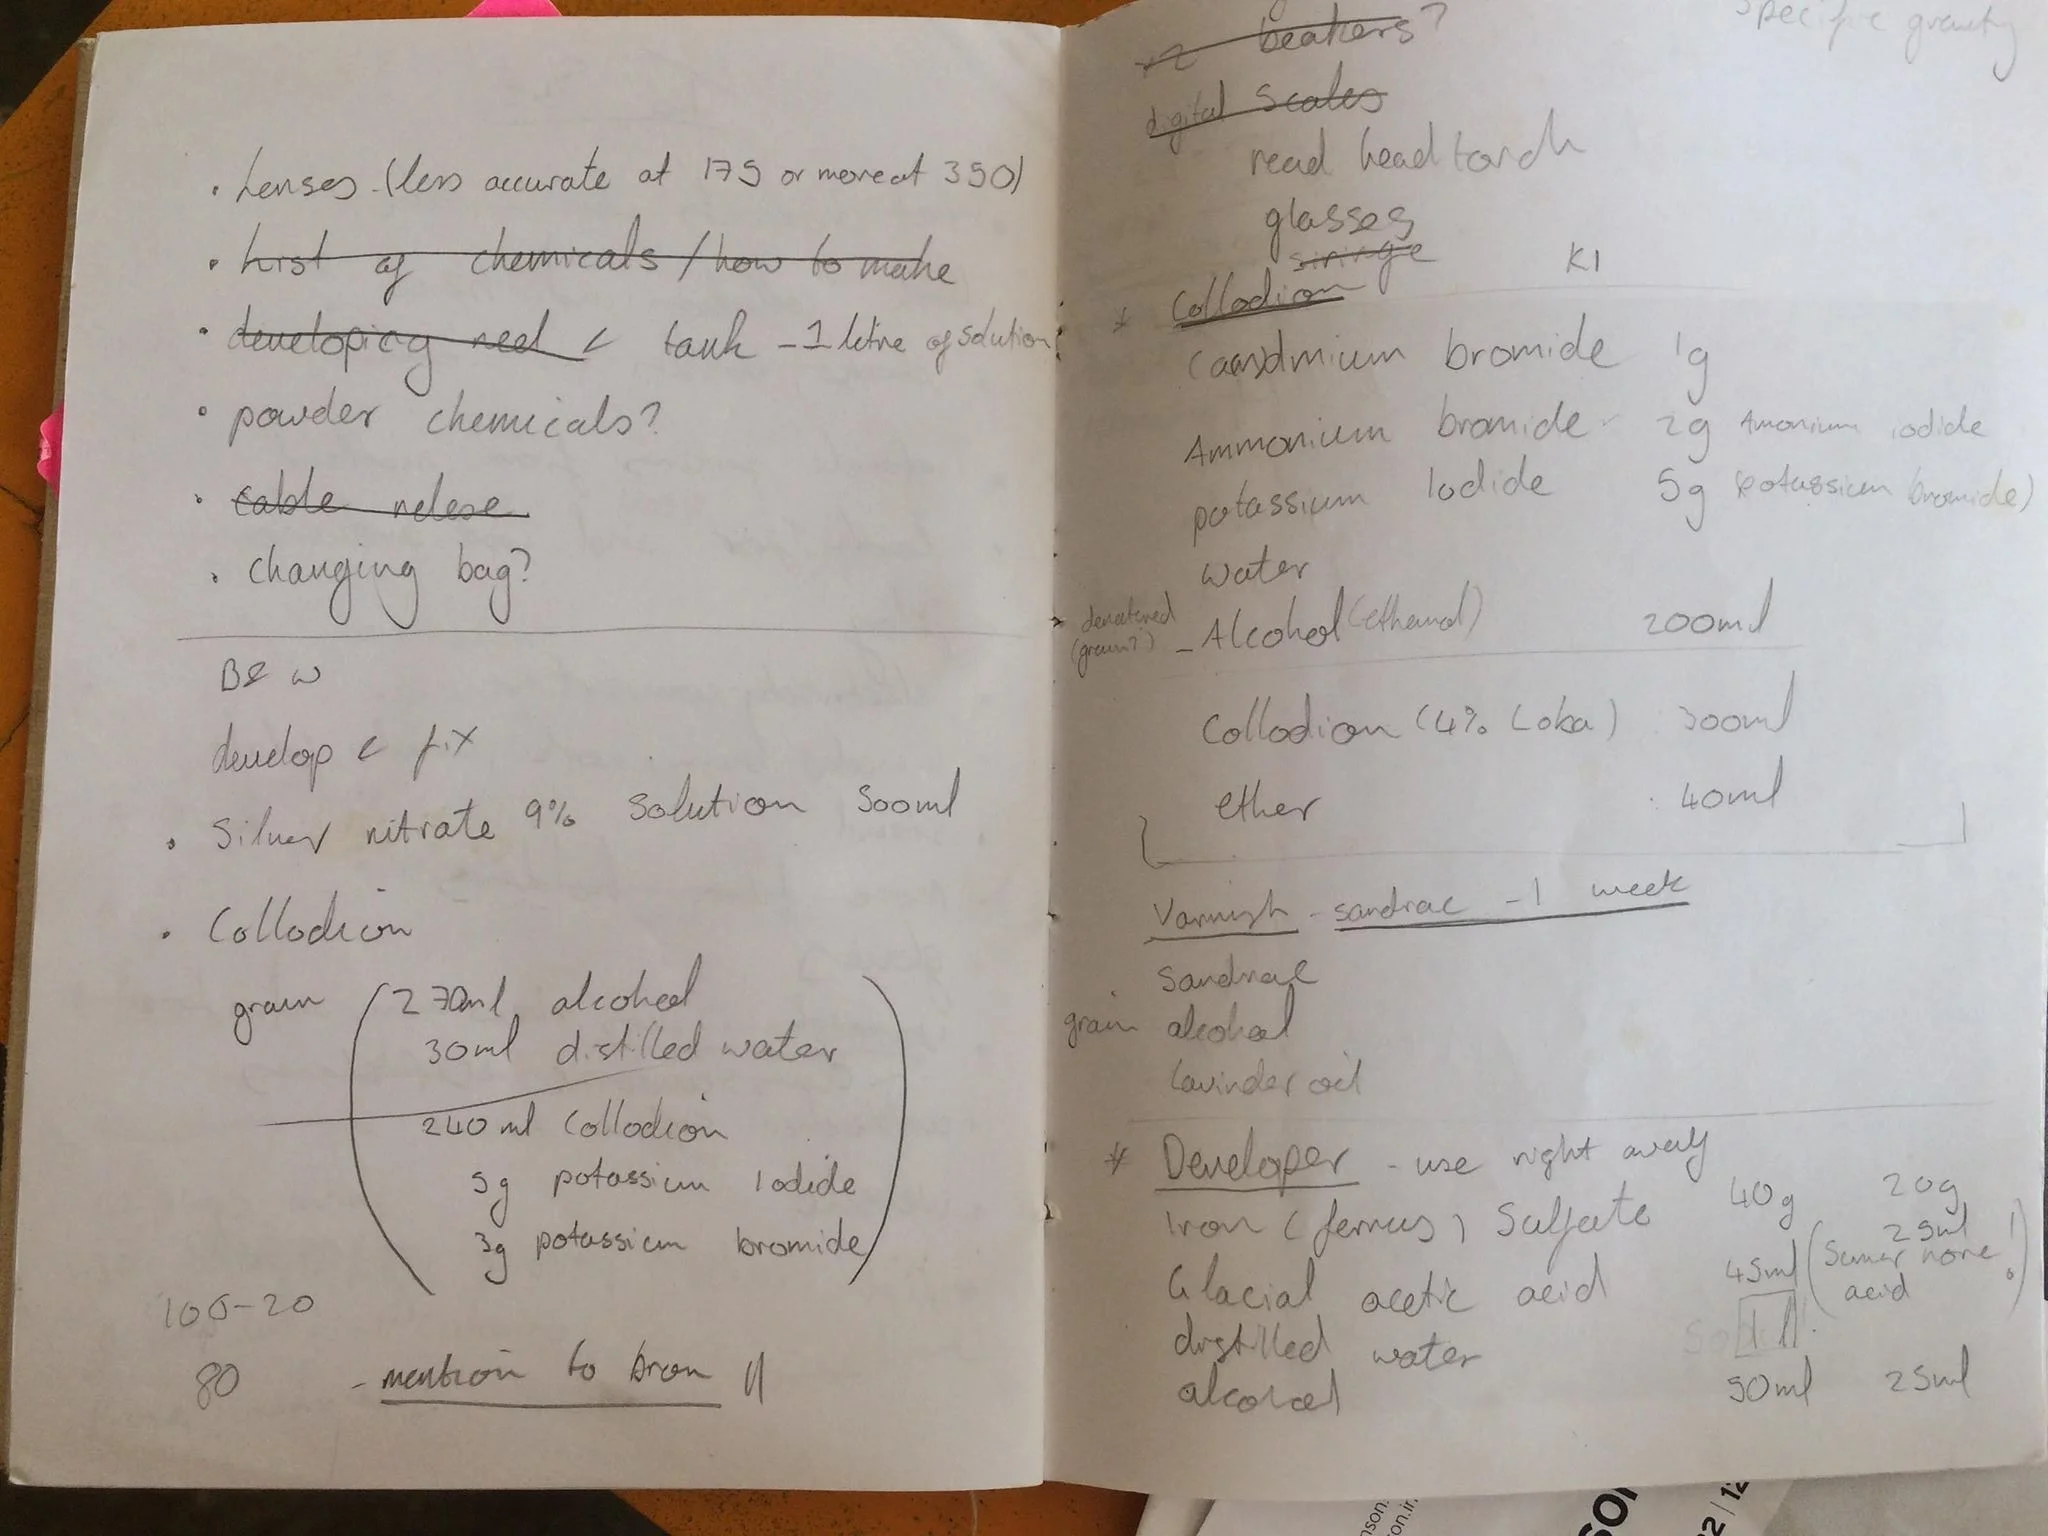 . Lenses (less accurate at 175 or more at 350)
. List of chemicals / how to make
. developing reel & tank - 1 litre of solution
. powder chemicals?
. cable relese
. changing bag?
B & W
develop & fix
. Silver nitrate 9% solution 500ml
. Collodion
grain (270ml alcohol
30ml distilled water
240ml Collodion
5g potassium Iodide
3g potassium bromide)
100-20
80 - mention to bron !!
x2 beakers?
specific gravity
digital scales
read head torch
glasses
siringe
K1
* Collodion
bromide 1g
Ammonium bromide 2g Amonium iodide
potassium Iodide 5g (potassium bromide)
water
denatured (grain?) - Alcohol (ethanol) 200ml
Collodion (4% Loba) 300ml
ether 40ml
Varnish - sandrac - 1 week
Sandrac
grain alcohol
Lavinder oil
* Developer - use right away
Iron (ferrus) Sulfate 40g 20g
Glacial acetic acid 45ml 25ml (Sumer more acid!)
distilled water 1l
alcohol 50ml 25ml
son.
on.ir
SON
22/12